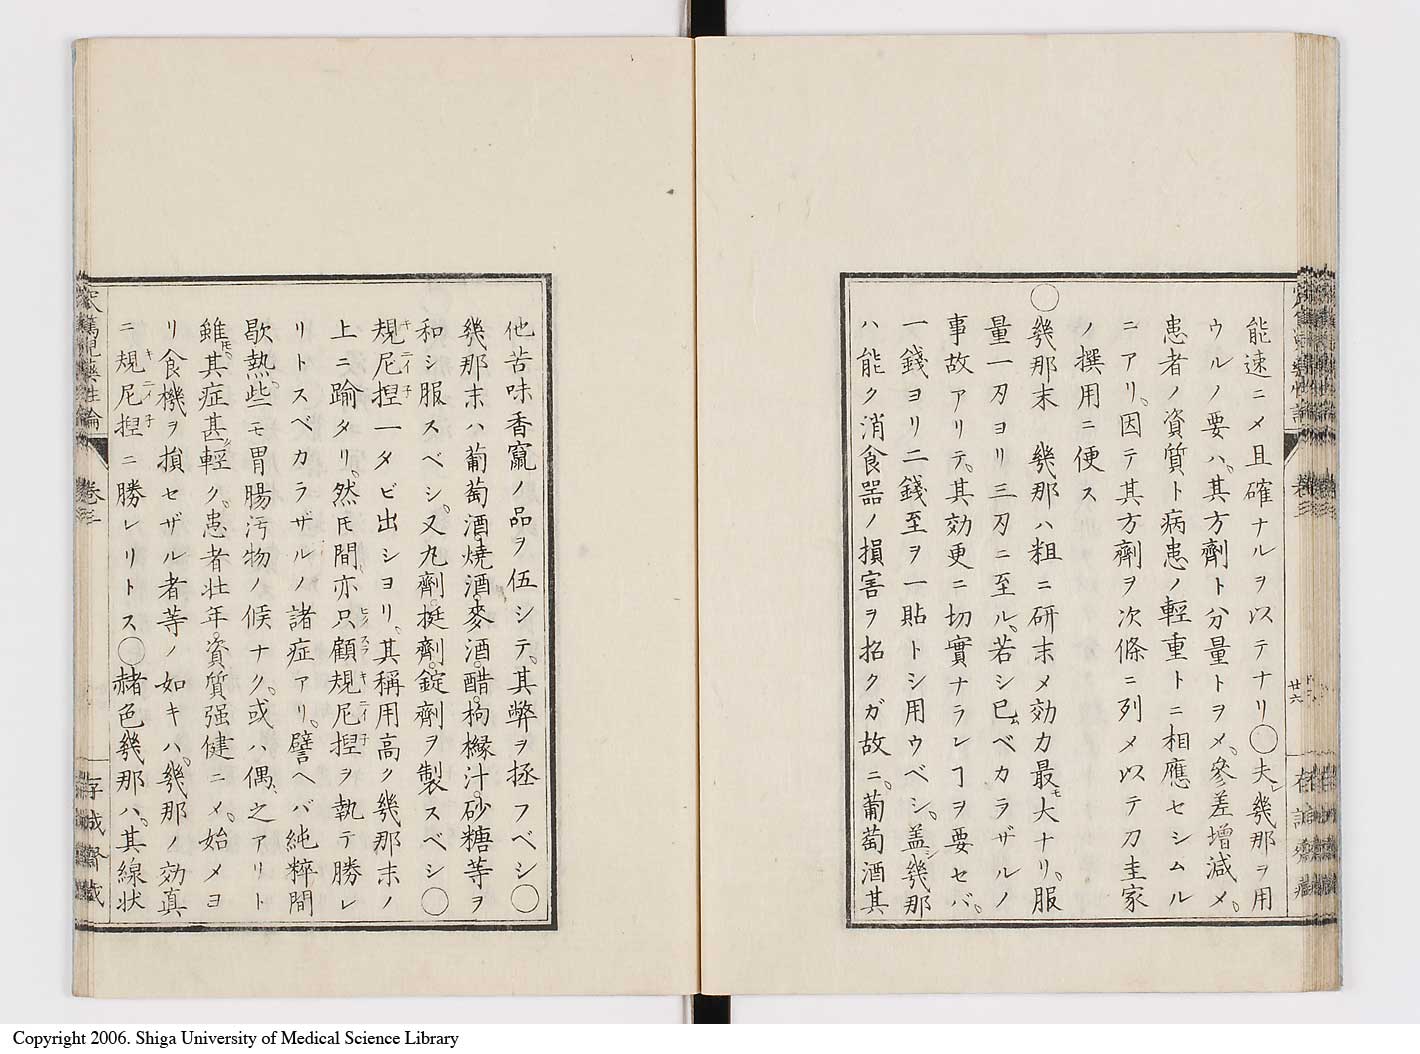 能速ニメ且確ナルヲ以テナリ◯夫幾那ヲ用
ウルノ要ハ其方劑ト分量トヲメ參差增減メ
患者ノ資質ト病患ノ輕重トニ相應セシムル
ニアリ因テ其方劑ヲ次條ニ列メ以テ刀圭家
ノ撰用ニ便ス
◯幾那末 幾那ハ粗ニ研末メ効力最モ大ナリ服
量一刃ヨリ三刃ニ至ル若シ已ムベカラザルノ
事故アリテ其効更ニ切實ナランヿヲ要セバ
一錢ヨリ二錢至ヲ一貼トシ用ウベシ盖シ幾那
ハ能ク消食器ノ損害ヲ招クガ故ニ葡萄酒其
卷三
廿六
他苦味香竄ノ品ヲ伍シテ其弊ヲ拯フベシ◯
幾那末ハ葡萄酒燒酒麥酒醋枸櫞汁砂糖等ヲ
和シ服スベシ又丸劑挺劑錠劑ヲ製スベシ◯
規尼捏一タビ出シヨリ其稱用高ク幾那末ノ
上ニ踰タリ然𪜈間亦只顧規尼捏ヲ執テ勝レ
リトスベカラザルノ諸症アリ譬ヘバ純粹間
歇熱些モ胃腸汚物ノ候ナク或ハ偶之アリト
雖𪜈其症甚輕ク患者壯年資質强健ニメ始メヨ
リ食機ヲ損セザル者等ノ如キハ幾那ノ効真
ニ規尼捏ニ勝レリトス◯赭色幾那ハ其線狀
窊篤兒藥性論
卷三
存誠齋藏
Copyright 2006. Shiga University of Medical Science Library